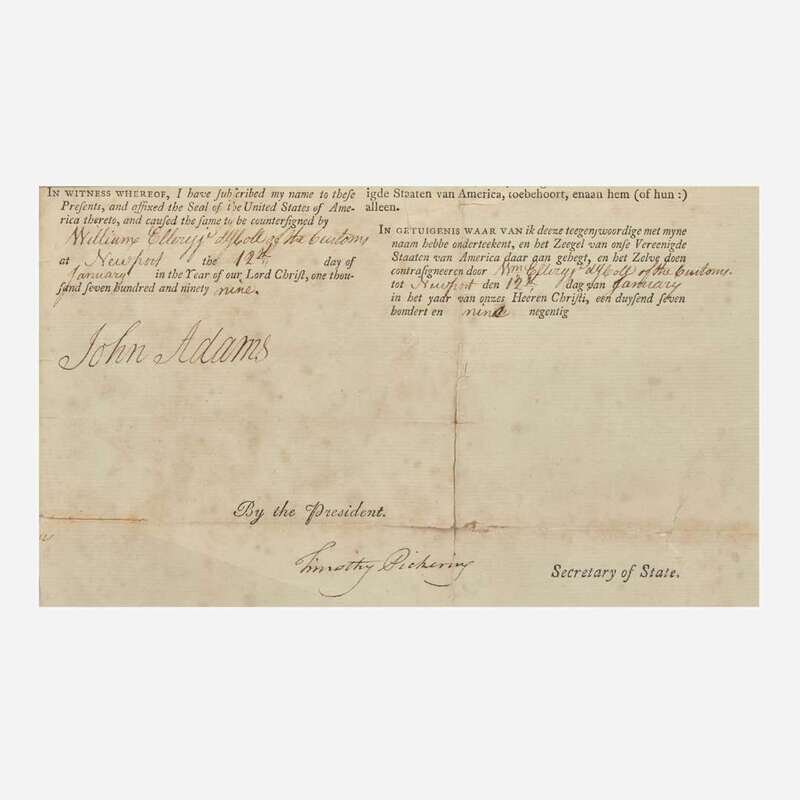 IN WITNESS WHEREOF, I have subscribed my name to these
Presents, and affixed the Seal of the United States of Ame-
rica thereto, and caused the same to be countersigned by
William Ellery jr. of the Customs
at Newport the 12th day of
January in the Year of our Lord Christ, one thou-
sand seven hundred and ninety nine.
John Adams
igde Staaten van America, toebehoort, enaan hem (of hun:)
alleen.
IN GETUIGENIS WAAR VAN ik deeze teegenywoordige met myne
naam hebbe onderteekent, en het Zeegel van onse Vereenigde
Staaten van America daar aan gehegt, en het Zelve doen
contrasigneeren door Wm Ellery jr of the Customs
tot Newport den 12th dag van January
in het yaar van onzes Heeren Christi, een duysend seven
hondert en nine negentig
By the President.
Timothy Pickering
Secretary of State.